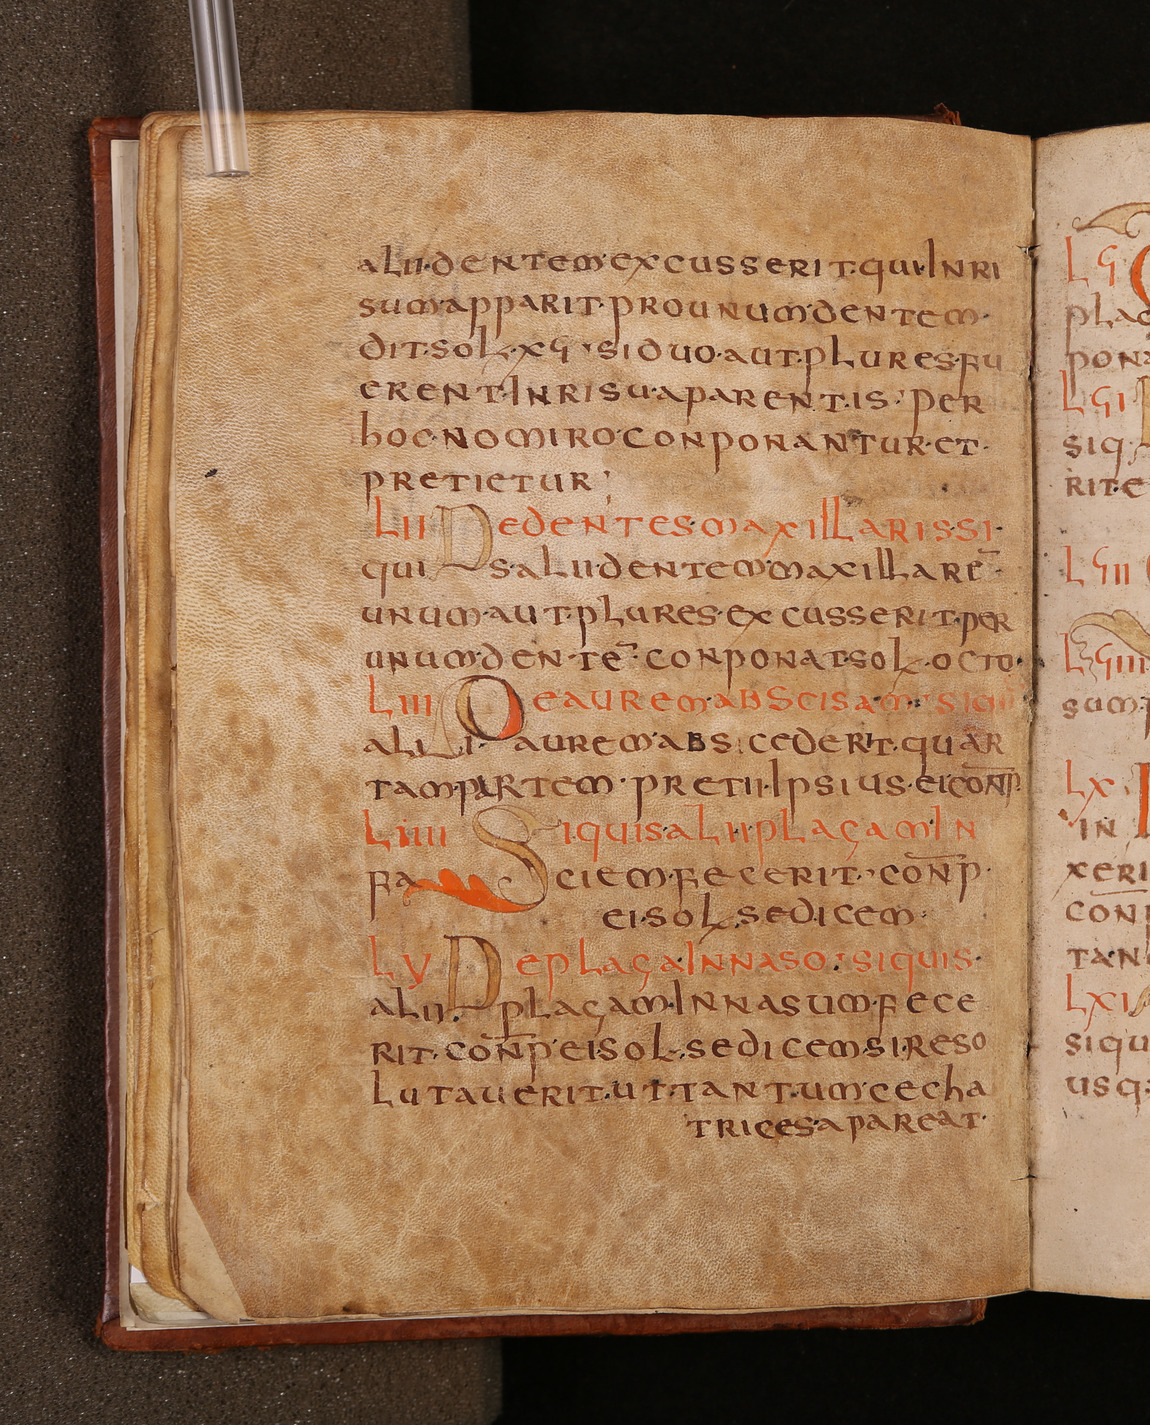 alii·dentem·excusserit·qui·Inri
sum·apparit·pro unum·dentem·
dit·sol·xϛ·si duo·aut·plures·fu
erent·In risu·aparentis·per
hoc·nomiro·conponantur·et·
pretietur;
LII De dentes·maxillaris·si·
quis·alii·dentem·maxillarē·
unum·aut·plures·excusserit·per
unum·dentē·conponat·sol·octo·
LIII De aurem·abscisam·si qui
alii·aurem·abs cederit·quar
tam·partem·pretii·Ipsius·ei conp̄
LIIII Siquis·alii·plagam·In
faciem·fecerit·conp̄·
ei·sol·sedicem·
LV De plaga·In naso·siquis·
alii·plagam·In nasum·fece
rit·conp̄·ei·sol·sedicem·si·reso
lutauerit·ut·tantum·cecha
trices·apareat·
Lϛ
plag
pona
LϛI
siq
rit·e
LϛII
LϛIII
sum
LX
in
xeri
con
tan
LXI
siqu
us q